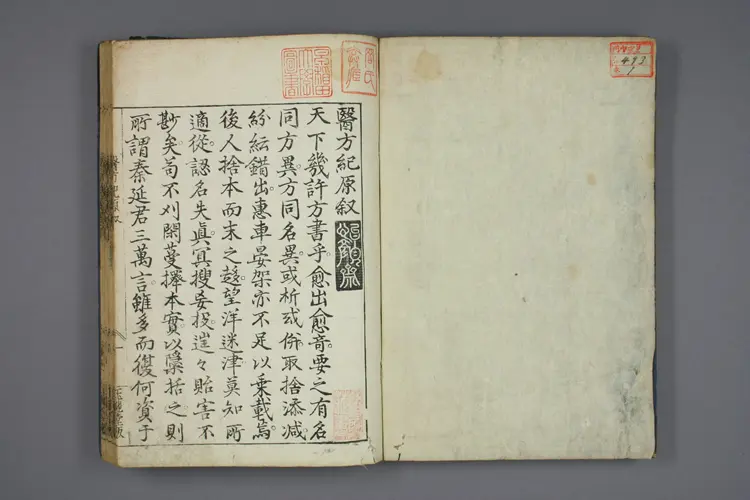 醫方紀原叙
天下幾許方書乎愈出愈奇要之有名
同方異方同名異或析或併取捨添減
紛紜錯出惠車晏架亦不足以乗載焉
後人捨本而末之趍望洋迷津莫知所
適從認名失眞冥搜妄投往々貽害不
尠矣苟不刈閑蔓擇本實以檃括之則
所謂秦延君三萬言雖多而復何資于
493
1